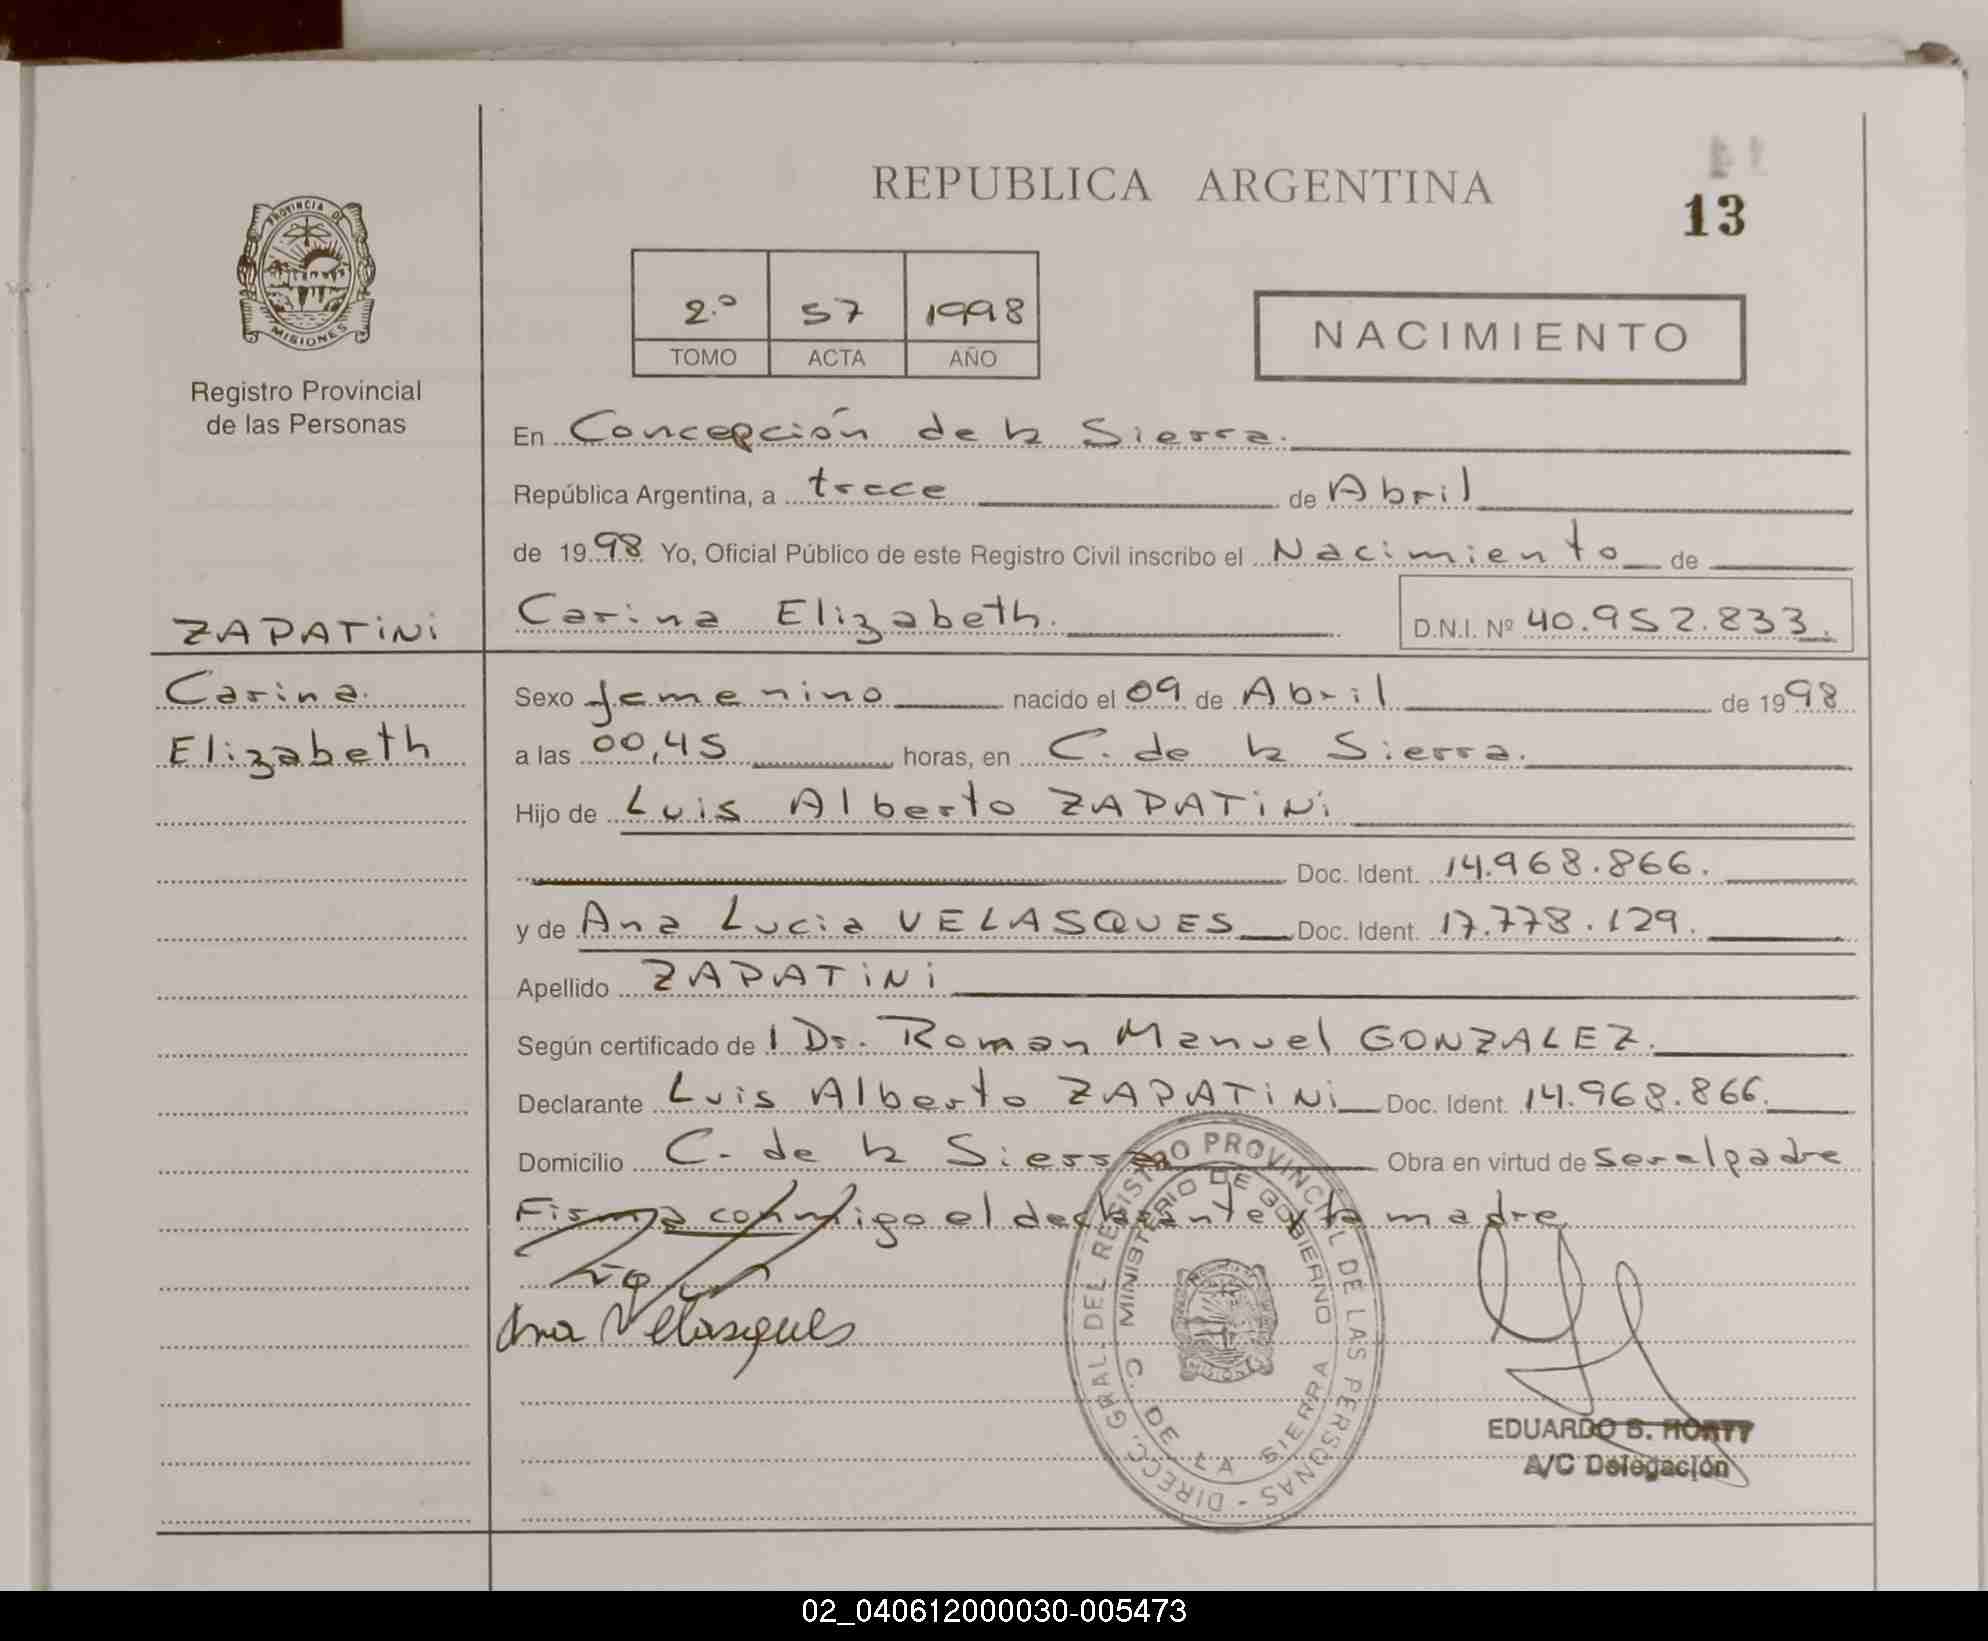 REPUBLICA ARGENTINA
13
PROVINCIA DE
MISIONES
Registro Provincial
de las Personas
2.º 57 1998
TOMO ACTA AÑO
NACIMIENTO
En Concepción de la Sierra.
República Argentina, a trece de Abril
de 1998 Yo, Oficial Público de este Registro Civil inscribo el Nacimiento de
ZAPATiNi
Carina
Elizabeth
Carina Elizabeth. D.N.I. Nº 40.952.833.
Sexo femenino nacido el 09 de Abril de 1998
a las 00,45 horas, en C. de la Sierra.
Hijo de Luis Alberto ZAPATiNi
Doc. Ident. 14.968.866.
y de Ana Lucia VELASQUES Doc. Ident. 17.778.129.
Apellido ZAPATiNi
Según certificado de l Dr. Roman Manuel GONZALEZ.
Declarante Luis Alberto ZAPATiNi Doc. Ident. 14.968.866.
Domicilio C. de la Sierra Obra en virtud de ser el padre
Firma conmigo el declarante y la madre
Ana Velasques
DIRECC. GRAL. DEL REGISTRO PROVINCIAL DE LAS PERSONAS -
MINISTERIO DE GOBIERNO
C. DE LA SIERRA
EDUARDO S.
A/C Delegación
02_040612000030-005473